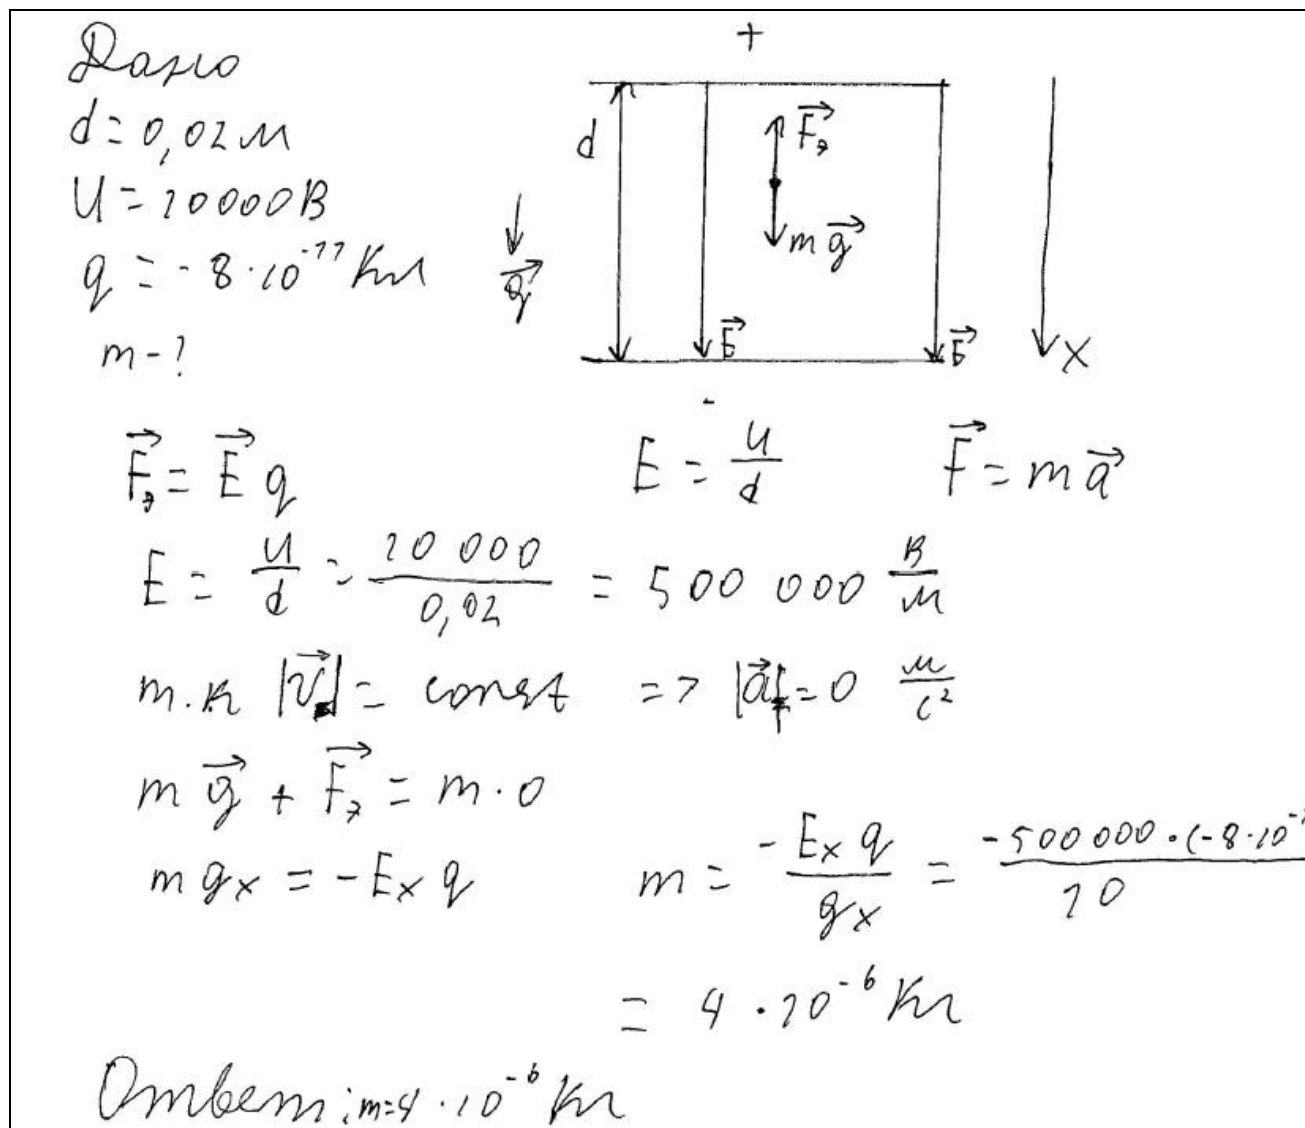 Дано
d = 0,02 м
U = 10000 В
q = -8·10⁻¹¹ Кл
m - ?
+
d
F⃗э
mg⃗
g⃗
E⃗
E⃗
X
-
F⃗э = E⃗ q
E = U/d
F⃗ = ma⃗
E = U/d = 10 000/0,02 = 500 000 В/м
т.к |v⃗| = const => |a⃗| = 0 м/с²
mg⃗ + F⃗э = m·0
mgx = -Ex q
m = -Ex q/gx = -500 000·(-8·10⁻/10
= 4·10⁻⁶ Кг
Ответ: m=4·10⁻⁶ Кг